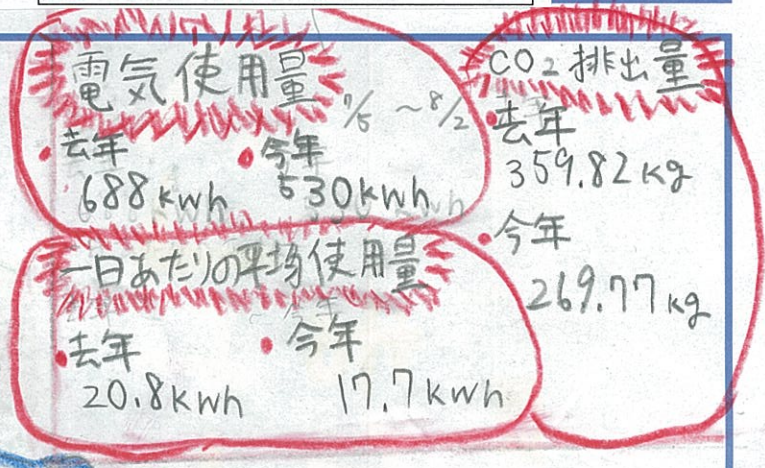 電気使用量
7/5 ~ 8/2
・去年 ・今年
688kwh 530kwh
一日あたりの平均使用量
・去年 ・今年
20.8kwh 17.7kwh
CO2排出量
・去年
359.82kg
・今年
269.77kg